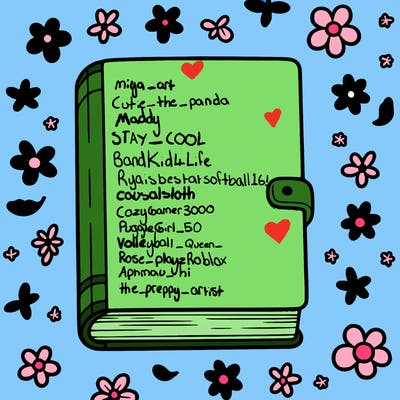 miga_art
Cutie_the_panda
Maddy
STAY_COOL
BandKid4Life
Ryaisbestatsoftball16!
causalsloth
CozyGamer3000
PuggleGirl_50
Volleyball_Queen_
Rose_playzRoblox
Aphmau_Uhi
the_preppy_artist